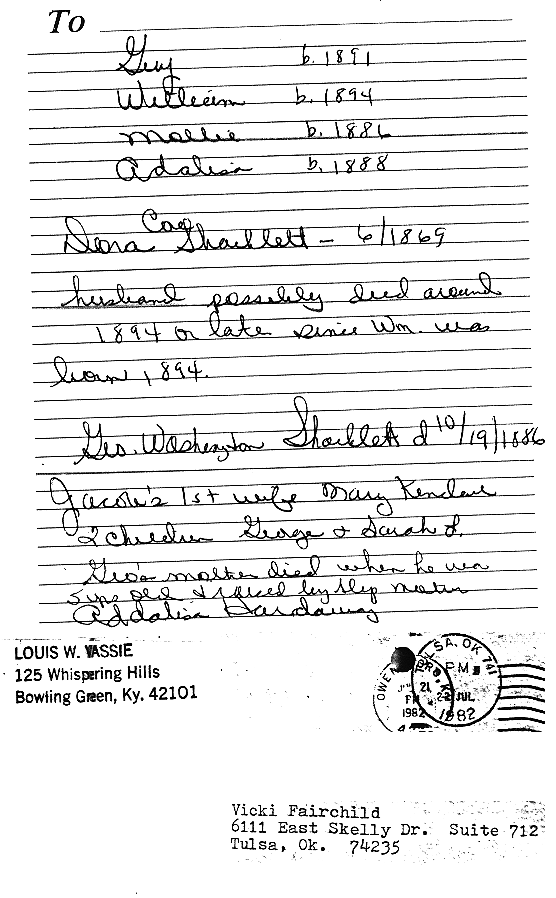 To
Guy b. 1891
William b. 1894
Mollie b. 1886
Adalisa b. 1888
Cag
Dora Shacklett - 6/1869
husband possibly died around
1894 or late since Wm. was
born 1894.
Geo. Washington Shacklett d 10/19/1886
Jacob's 1st wife Mary
2 children George + Sarah L.
Geo's mother died when he was
5 yrs old & raised by step mother
Addalisa Hardaway
LOUIS W. VASSIE
125 Whispering Hills
Bowling Green, Ky. 42101
OWEN
TULSA, OK 741
PM
21
PM
1982
JUL
1982
Vicki Fairchild
6111 East Skelly Dr. Suite 712
Tulsa, Ok. 74235